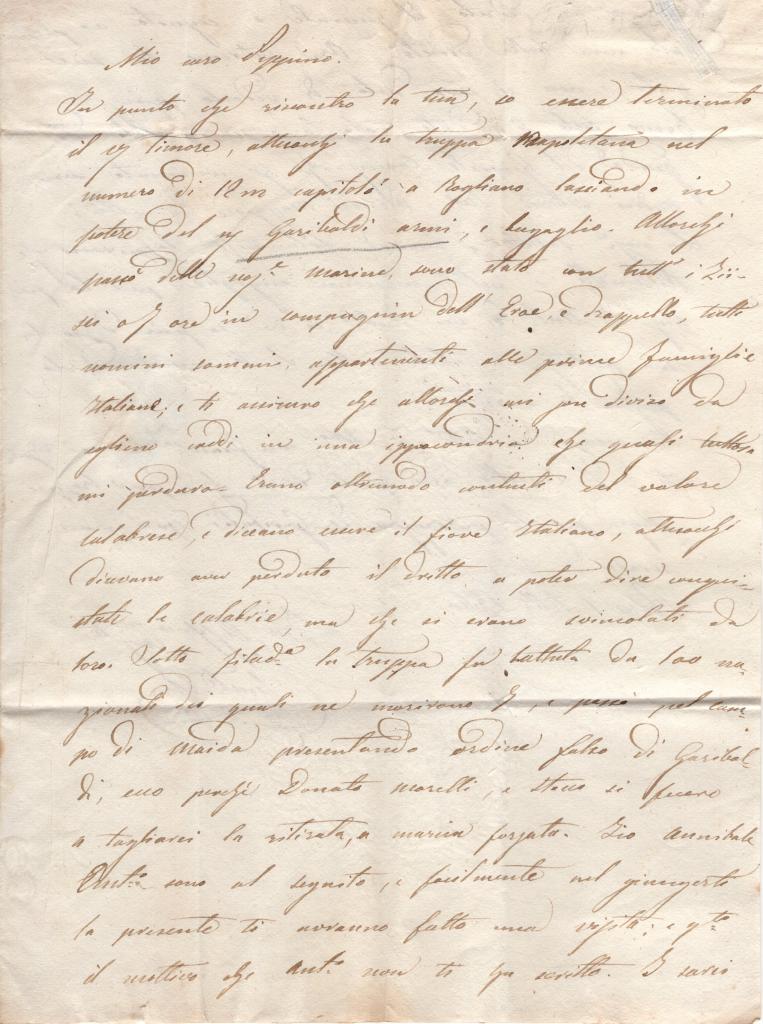 Mio caro Peppino.
In punto che riscontro la tua, è essere terminato
il timore, attesocché la truppa Napoletana nel
numero di 12m capitolò a Rogliano lasciando in
potere del Garibaldi armi, e bagaglio. Allorché
passò dalle marine, sono stato con tutt' i Zii
sei o 7 ore in compagnia dell' Eroe, e drappello, tutti
uomini sommi, appartenenti alle prime famiglie
Italiane; e ti assicuro che allorché mi fu diviso da
eglino caddi in una ippocondria che quasi tuttora
mi perdura. Erano oltremodo contenti del valore
calabrese, e diceano essere il fiore Italiano, attesocché
diceano aver perduto il dritto a poter dire conqui-
state le calabrie, ma che si erano svincolati da
loro. Sotto Filad.a la truppa fu battuta da 100 na-
zionali dei quali ne morirono 7, e passò pel cam-
po di Maida presentando ordine falso di Garibal-
di, ecco perché Donato Morelli, e Stocco si fecero
a tagliarci la ritirata, a marcia forzata. Zio Annibale
Ant.o sono al seguito, e facilmente nel giungerti
la presente ti avranno fatto una visita; e q.to
il mottivo che Ant.o non ti ha scritto. I